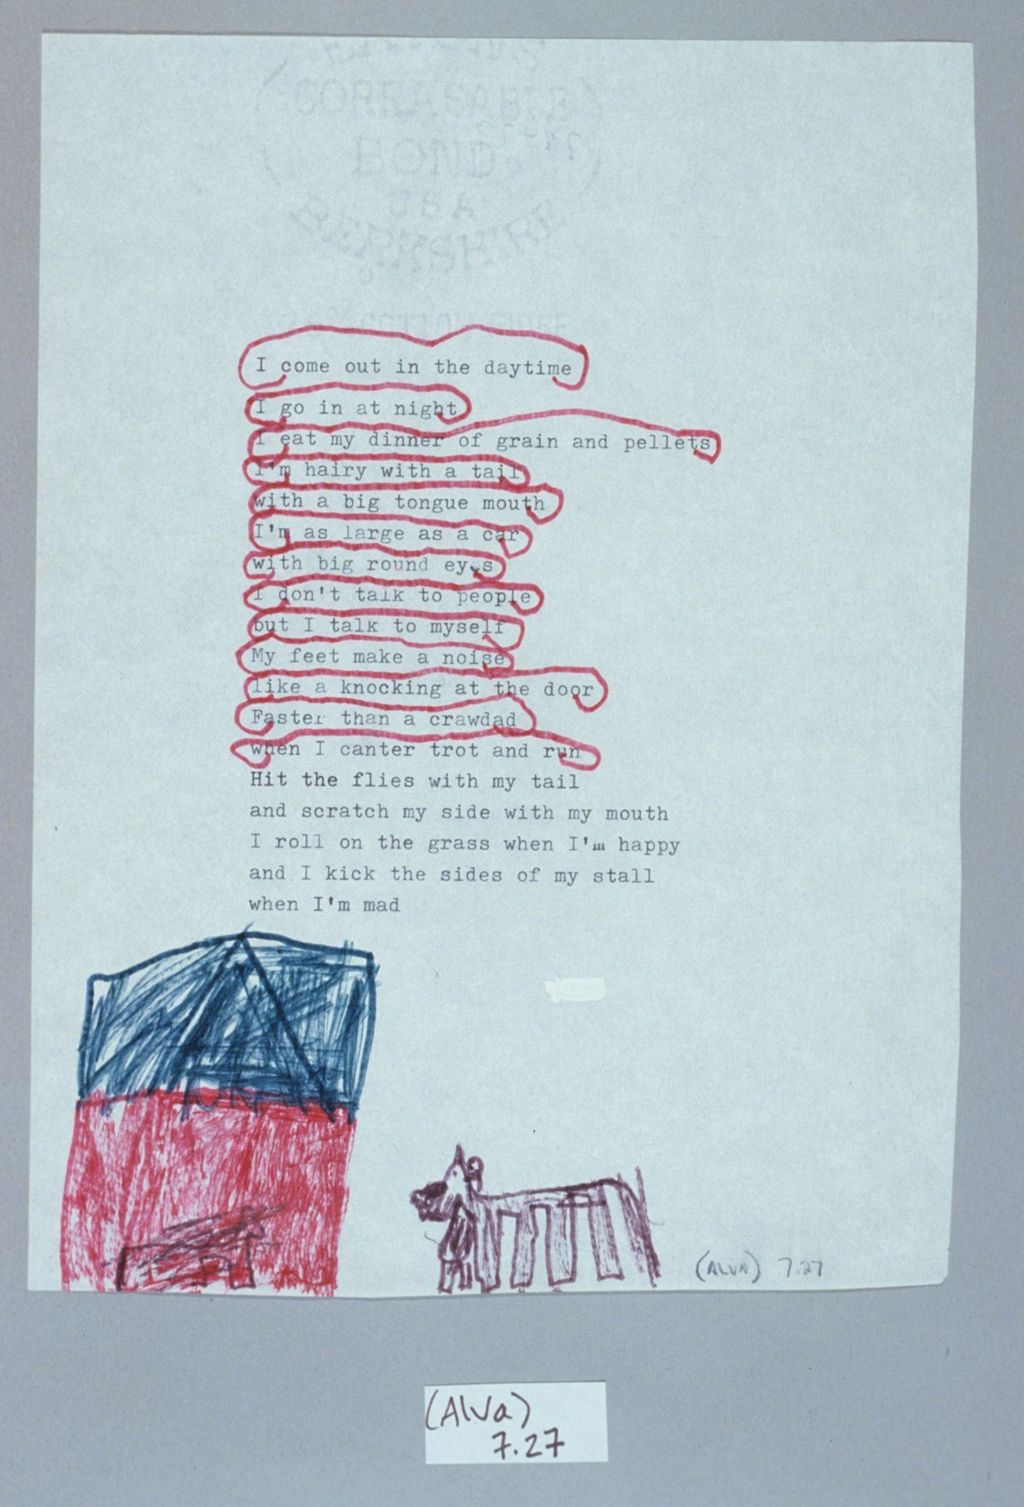 CORRASABLE
BOND
USA
BERKSHIRE
COTTON FIBER
I come out in the daytime
I go in at night
I eat my dinner of grain and pellets
I'm hairy with a tail
with a big tongue mouth
I'm as large as a car
with big round eyes
I don't talk to people
but I talk to myself
My feet make a noise
like a knocking at the door
Faster than a crawdad
when I canter trot and run
Hit the flies with my tail
and scratch my side with my mouth
I roll on the grass when I'm happy
and I kick the sides of my stall
when I'm mad
(ALVA) 7.27
(Alva)
7.27